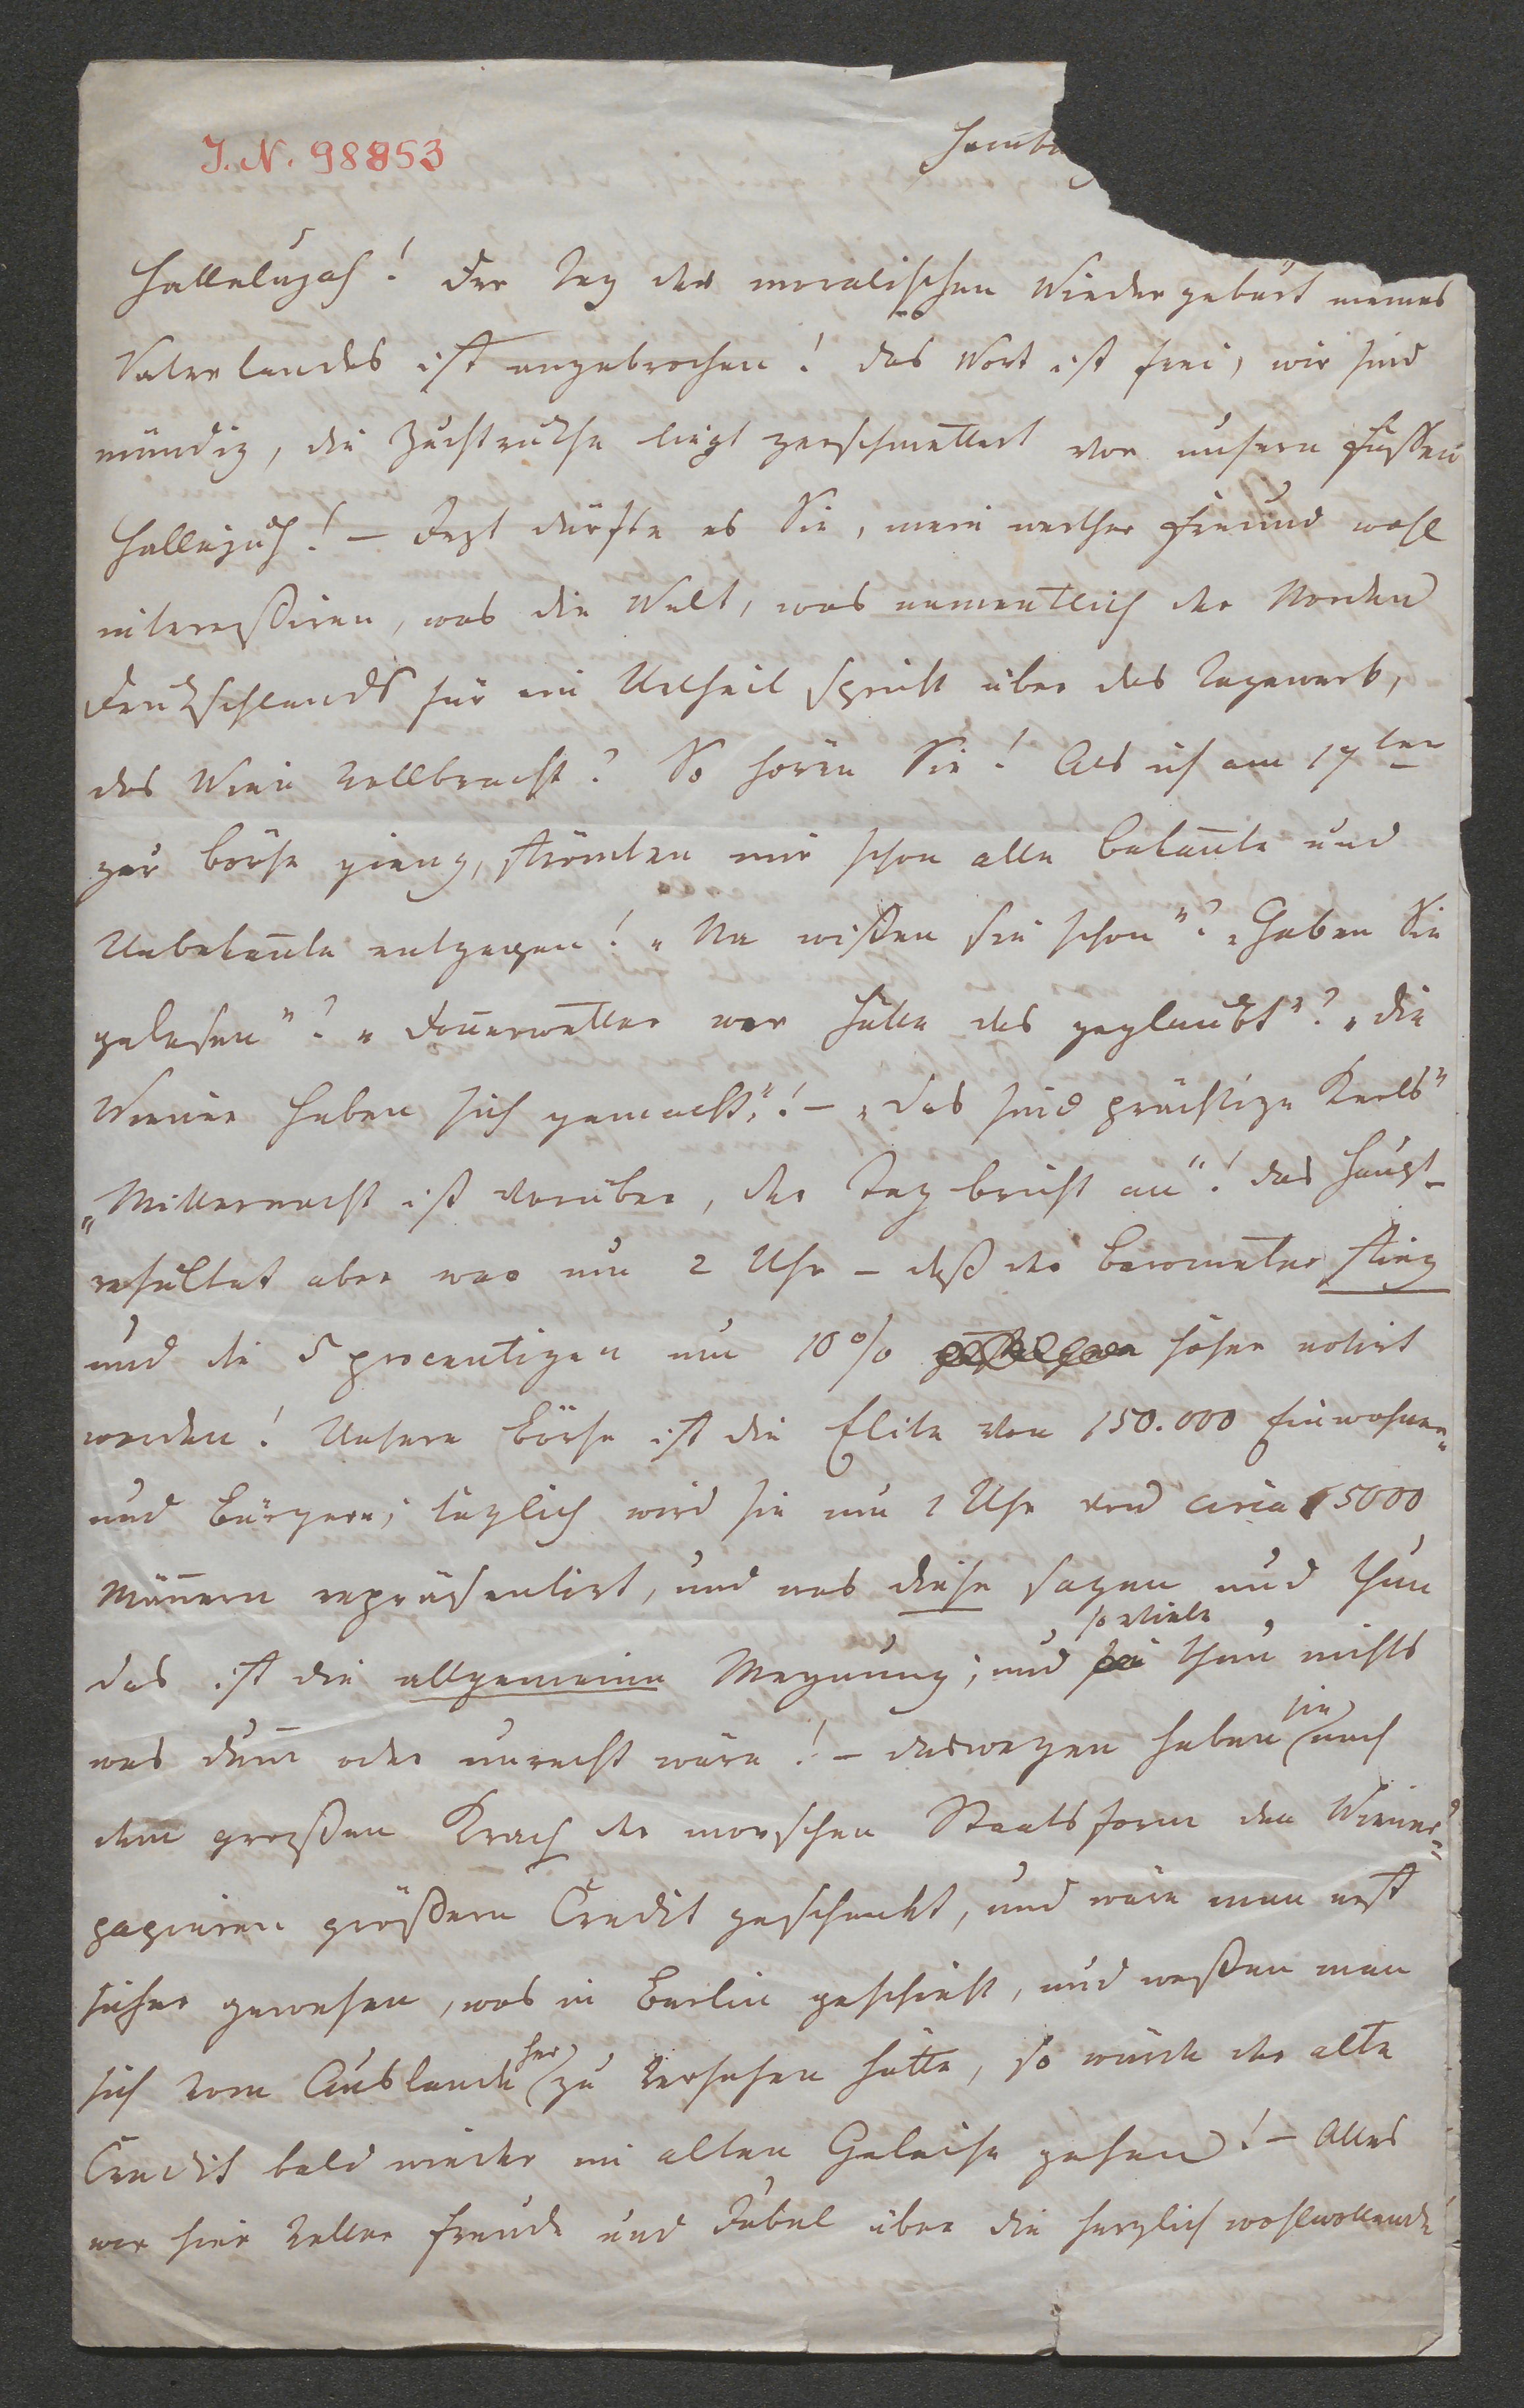 J. N. 98853
Hambu
Hallelujah! Der Tag der moralischen Wiedergeburt meines
Vaterlandes ist angebrochen! das Wort ist frei, wir sind
mündig, die Zuchtruthe liegt zerschmettert vor unsern Füssen
Hallejuh! – Jezt dürfte es Sie, mein werther Freund wohl
interessiren, was die Welt, was namentlich der Norden
Deutschlands für ein Urtheil spricht über das Tagewerk,
das Wien vollbracht? So hören Sie! Als ich am 17ten
zur Börse gieng, strömten mir schon alle Bekannte und
Unbekannte entgegen! „Na wißen sie schon"? „Haben Sie
gelesen"? „Donnerwetter wer hätte das geglaubt"? „die
Wiener haben sich gemacht"! – „das sind prächtige Kerls"
„Mitternacht ist vorüber, der Tag bricht an"! das Haupt-
resultat aber war um 2 Uhr – daß der Barometer stieg
und die 5 procentigen um 10% höher notirt
worden! Unsere Börse ist die Elite von 150.000 Einwohner
und Bürgern; täglich wird sie um 1 Uhr von circa 5000
Männern repräsentirt, und was diese sagen und thun
das ist die allgemeine Meynung; und so viele thun nichts
was dum oder unrecht wäre! – deswegen haben sie nach
dem großen Krach der morschen Staatsform den Wiener-
papieren größern Credit geschenkt, und wäre man erst
sicher gewesen, was in Berlin geschieht, und weßen man
sich vom Auslande her zu versehen hätte, so würde der alte
Credit bald wieder im alten Geleise gehen! – Alles
war hier voller Freude und Jubel über die herzlich wohlwollende